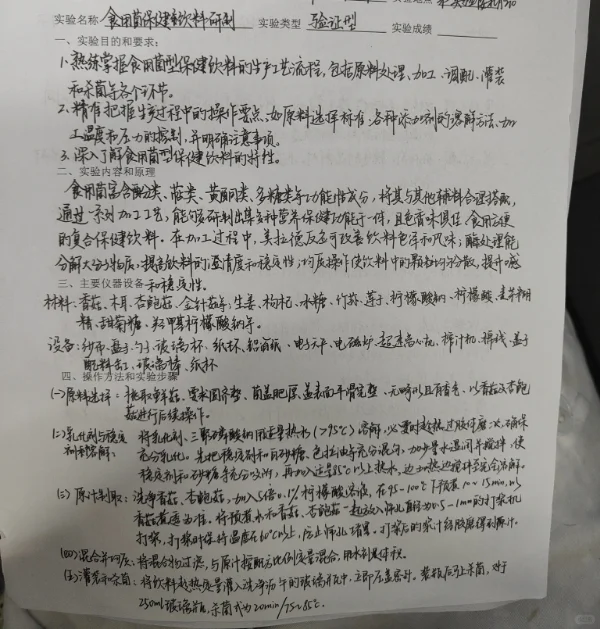 实验名称 食用菌保健饮料研制 实验类型 验证型 实验成绩
一、实验目的和要求:
1.熟练掌握食用菌型保健饮料的生产工艺流程,包括原料处理、加工、调配、灌装
和杀菌等各个环节。
2.精准把握生产过程中的操作要点,如原料选择标准、各种添加剂的溶解方法、加
工温度和压力的控制,并明确注意事项。
3.深入了解食用菌型保健饮料的特性。
二、实验内容和原理
食用菌富含酚类、萜类、黄酮类、多糖类等功能性成分,将其与其他辅料合理搭配,
通过一系列加工工艺,能够研制出集多种营养保健功能于一体,且色香味俱佳、食用方便
的复合保健饮料。在加工过程中,美拉德反应可改善饮料色泽和风味;酶处理能
分解大分子物质,提高饮料的澄清度和稳定性;均质操作使饮料中的颗粒均匀分散,提升口感
三、主要仪器设备 和稳定性。
材料:香菇、木耳、杏鲍菇、金针菇等,生姜、枸杞、冰糖、竹荪、莲子、柠檬酸钠、柠檬酸、麦芽糊
精、甜菊糖、羧甲基柠檬酸钠等。
设备:纱布、盖子、勺子、玻璃杯、纸杯、铝箔纸、电子天平、电磁炉、超速离心机、榨汁机、擀线、盖子
肥料缸、玻璃棒、纸杯
四、操作方法和实验步骤
(一)原料选择:挑取鲜菇,要求圆齐整、菌盖肥厚、盖表面平滑完整、无畸形且有香气,以香菇及杏鲍
菇进行后续操作。
(二)乳化剂与稳定 将乳化剂、三聚磷酸钠用适量热水(>95℃)溶解,必要时趁热过胶体磨一次,确保
剂的溶解: 充分乳化。先把稳定剂和白砂糖、色拉油充分混匀,加少量水湿润并搅拌,使
稳定剂和砂糖等充分吸水,再加入适量85℃以上热水,边加热边搅拌至完全溶解。
(三)原汁制取:洗净香菇、杏鲍菇,加入5倍0.1%柠檬酸溶液,在95-100℃下预煮 15min,以
香菇煮透为准。将预煮水和香菇、杏鲍菇一起放入筛孔直径为0.5-1mm的打浆机
打浆,打浆时保持温度在60℃以上,防止筛孔堵塞。打浆后的浆汁经胶磨得到原汁。
(四)混合并均质:将混合物过滤,与原汁按配方比例定量混合,用水制定体积。
(五)灌装和杀菌:将饮料趁热定量灌入洗净沥干的玻璃瓶中,立即压盖密封。装瓶后马上杀菌,对于
250ml玻璃瓶,杀菌式为20min/75~85℃.